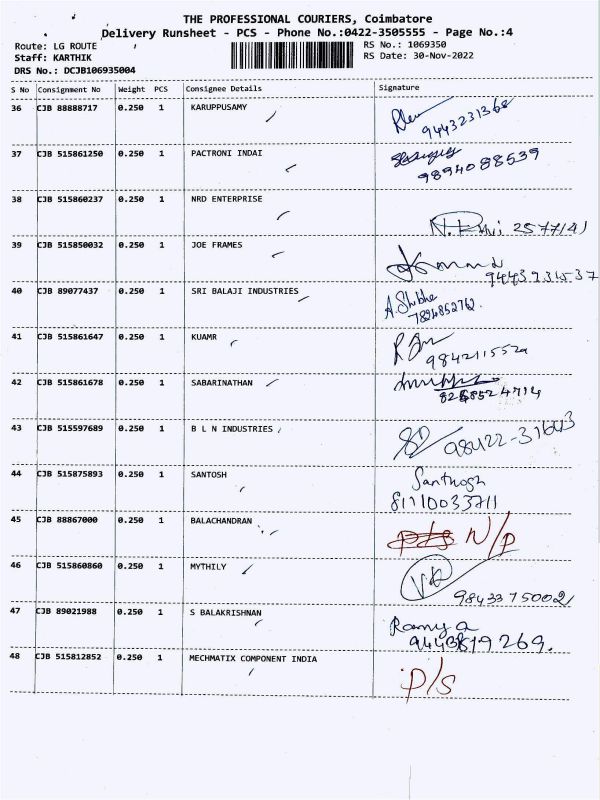 THE PROFESSIONAL COURIERS, Coimbatore
Delivery Runsheet - PCS - Phone No.:0422-3505555 - Page No.:4
Route: LG ROUTE RS No.: 1069350
Staff: KARTHIK RS Date: 30-Nov-2022
DRS No.: DCJB106935004
S No Consignment No Weight PCS Consignee Details Signature
36 CJB 88888717 0.250 1 KARUPPUSAMY
9443231368
37 CJB 515861250 0.250 1 PACTRONI INDAI
9894088539
38 CJB 515860237 0.250 1 NRD ENTERPRISE
2577141
39 CJB 515850032 0.250 1 JOE FRAMES
40 CJB 89077437 0.250 1 SRI BALAJI INDUSTRIES
A.Shibha
7894852762.
41 CJB 515861647 0.250 1 KUAMR
42 CJB 515861678 0.250 1 SABARINATHAN
43 CJB 515597689 0.250 1 B L N INDUSTRIES
98422-31643
44 CJB 515875893 0.250 1 SANTOSH
Santhosh
81110033711
45 CJB 88867000 0.250 1 BALACHANDRAN
N/P
46 CJB 515860860 0.250 1 MYTHILY
9843375002
47 CJB 89021988 0.250 1 S BALAKRISHNAN
Ramya
48 CJB 515812852 0.250 1 MECHMATIX COMPONENT INDIA
P/S